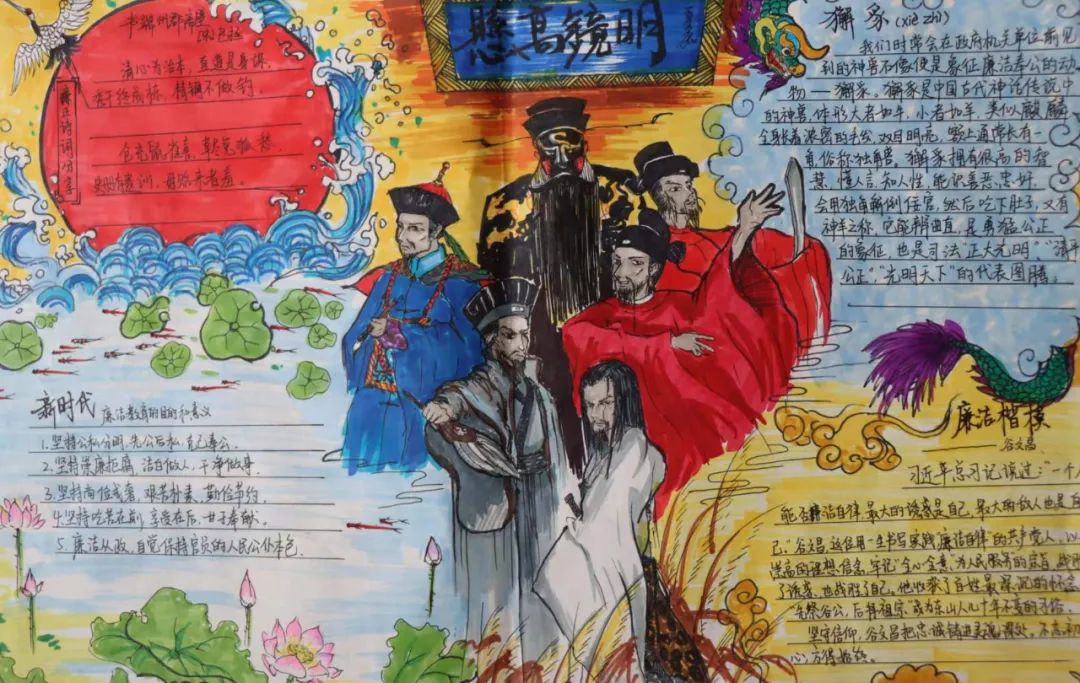 明镜高悬
书端州郡斋壁
清心为治本,直道是身谋。
秀干终成栋,精钢不做钩。
仓充鼠雀喜,草尽
史册有遗训,毋贻来者羞。
廉正诗词分享
獬豸(xiè zhì)
我们时常会在政府机关单位前见
到的神兽石像便是象征廉洁奉公的动
物——獬豸。獬豸是中国古代神话传说中
的神兽,体形大者如牛,小者如羊,类似麒麟
全身长着浓密的毛公,双目明亮,额上通常长有一
角,俗称独角兽。獬豸拥有很高的智
慧,懂人言,知人性,能识善恶忠奸
会用独角解倒任官,然后吃下肚子,又有
神羊之称,它能辨曲直,是勇猛公正
的象征,也是司法"正大光明""清平
公正""光明天下"的代表图腾。
新时代 廉洁教育的目的和意义
1.坚持公私分明,先公后私,克己奉公。
2.坚持崇廉拒腐,洁白做人,干净做事
3.坚持尚俭戒奢,艰苦朴素,勤俭节约.
4.坚持吃苦在前,享受在后,甘于奉献.
5.廉洁从政,自觉保持官员的人民公仆本色.
廉洁楷模
谷文昌
习近平总习记说过:"一个人
能否廉洁自律,最大的诱惑是自己,最大的敌人也是自
己."谷文昌,这位用一生书写实践"廉洁自律"的共产党人,以
崇高的理想信念,牢记"全心全意"为人民服务的宗旨,战胜
了诱惑,也战胜了自己,他收获了百姓最深沉的怀念
"先祭谷公,后拜祖宗"成为东山人几十年不变的习俗。
坚守信仰,谷文昌把忠诚铸进灵魂深处。不忘初
心,方得始终。